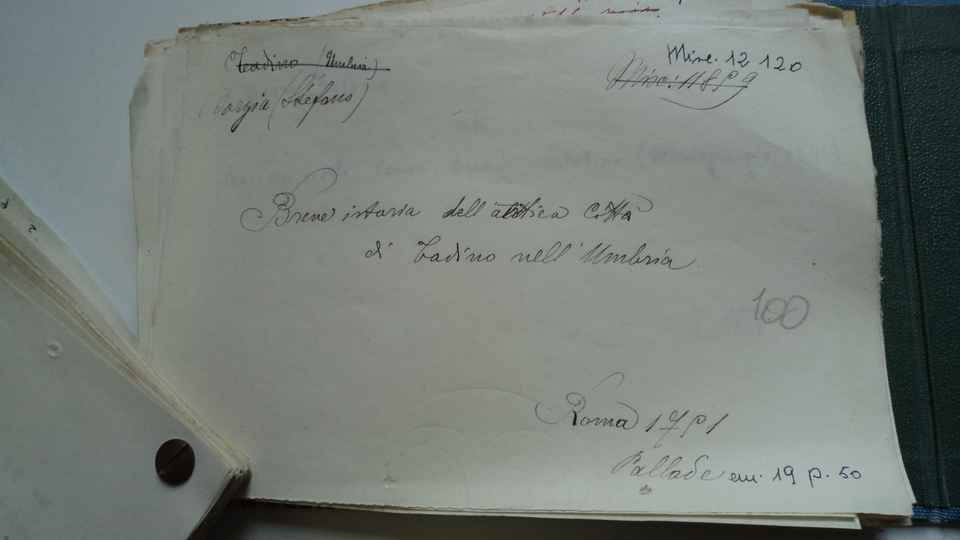 (Tadino (Umbria)
(Borgia (Stefano)
Misc. 12 120
Misc: 11859
Breve istoria dell'antica Città
di Tadino nell'Umbria
100
Roma 1751
Pallade em. 19 p. 50